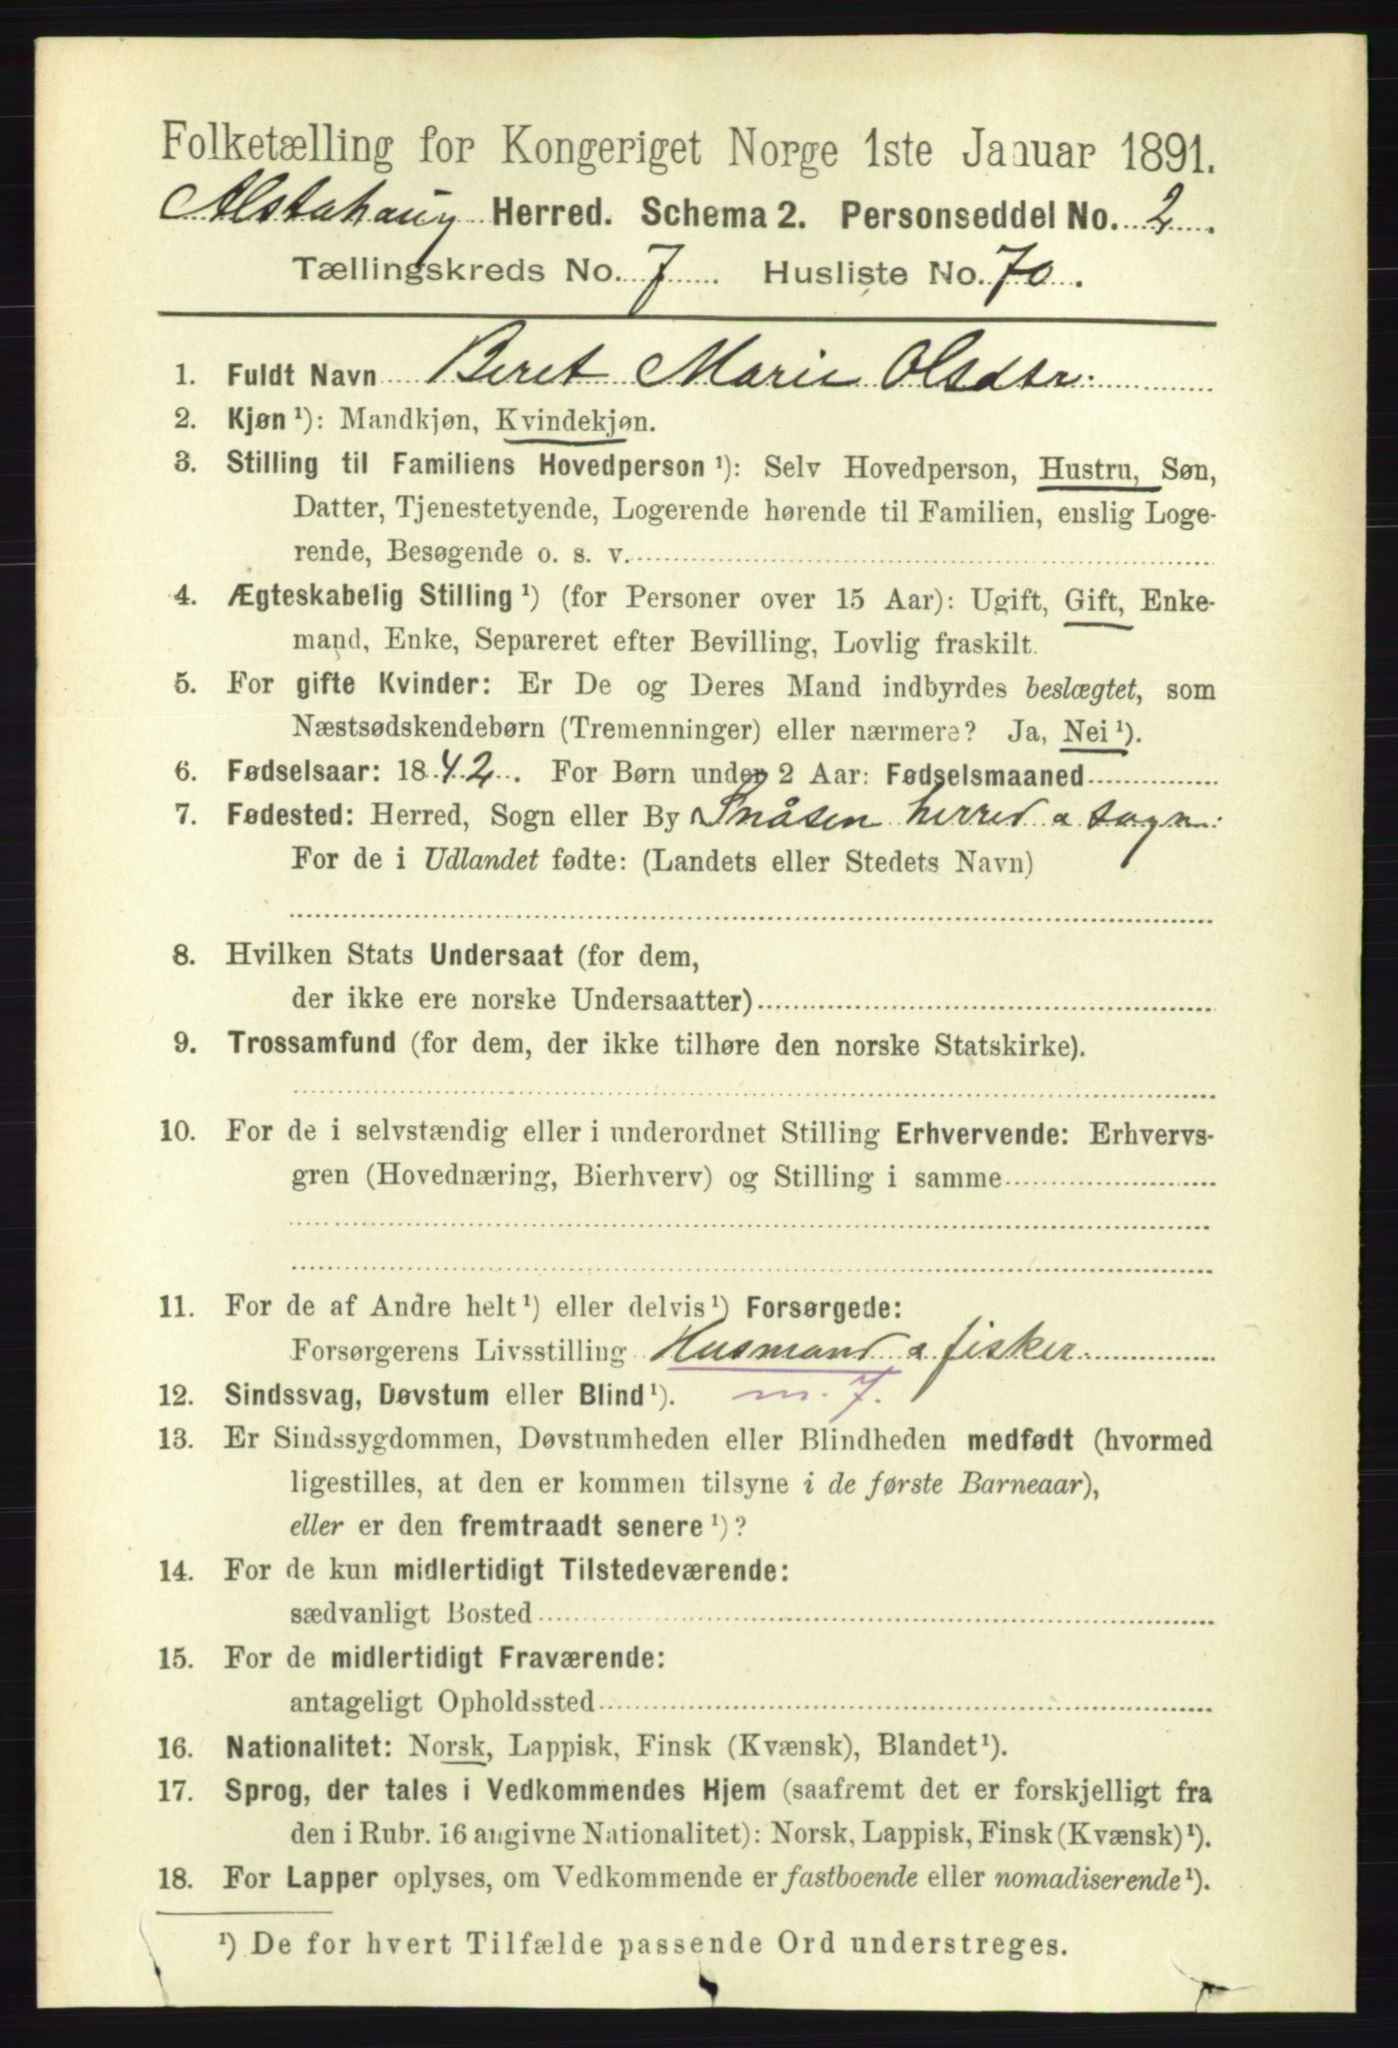 Folketælling for Kongeriget Norge 1ste Januar 1891.
Alstahaug Herred. Schema 2. Personseddel No. 2.
Tællingskreds No. 7 Husliste No. 70.
1. Fuldt Navn Beret Marie Olsdtr.
2. Kjøn ¹): Mandkjøn, Kvindekjøn.
3. Stilling til Familiens Hovedperson ¹): Selv Hovedperson, Hustru, Søn,
Datter, Tjenestetyende, Logerende hørende til Familien, enslig Loge-
rende, Besøgende o. s. v.
4. Ægteskabelig Stilling ¹) (for Personer over 15 Aar): Ugift, Gift, Enke-
mand, Enke, Separeret efter Bevilling, Lovlig fraskilt.
5. For gifte Kvinder: Er De og Deres Mand indbyrdes beslægtet, som
Næstsødskendebørn (Tremenninger) eller nærmere? Ja, Nei ¹).
6. Fødselsaar: 1842. For Børn under 2 Aar: Fødselsmaaned
7. Fødested: Herred, Sogn eller By Snåsen herred a sogn:
For de i Udlandet fødte: (Landets eller Stedets Navn)
8. Hvilken Stats Undersaat (for dem,
der ikke ere norske Undersaatter)
9. Trossamfund (for dem, der ikke tilhøre den norske Statskirke).
10. For de i selvstændig eller i underordnet Stilling Erhvervende: Erhvervs-
gren (Hovednæring, Bierhverv) og Stilling i samme
11. For de af Andre helt ¹) eller delvis ¹) Forsørgede:
Forsørgerens Livsstilling Husmand a fisker
12. Sindssvag, Døvstum eller Blind ¹). m. 7.
13. Er Sindssygdommen, Døvstumheden eller Blindheden medfødt (hvormed
ligestilles, at den er kommen tilsyne i de første Barneaar),
eller er den fremtraadt senere ¹)?
14. For de kun midlertidigt Tilstedeværende:
sædvanligt Bosted
15. For de midlertidigt Fraværende:
antageligt Opholdssted
16. Nationalitet: Norsk, Lappisk, Finsk (Kvænsk), Blandet ¹).
17. Sprog, der tales i Vedkommendes Hjem (saafremt det er forskjelligt fra
den i Rubr. 16 angivne Nationalitet): Norsk, Lappisk, Finsk (Kvænsk) ¹).
18. For Lapper oplyses, om Vedkommende er fastboende eller nomadiserende ¹).
¹) De for hvert Tilfælde passende Ord understreges.